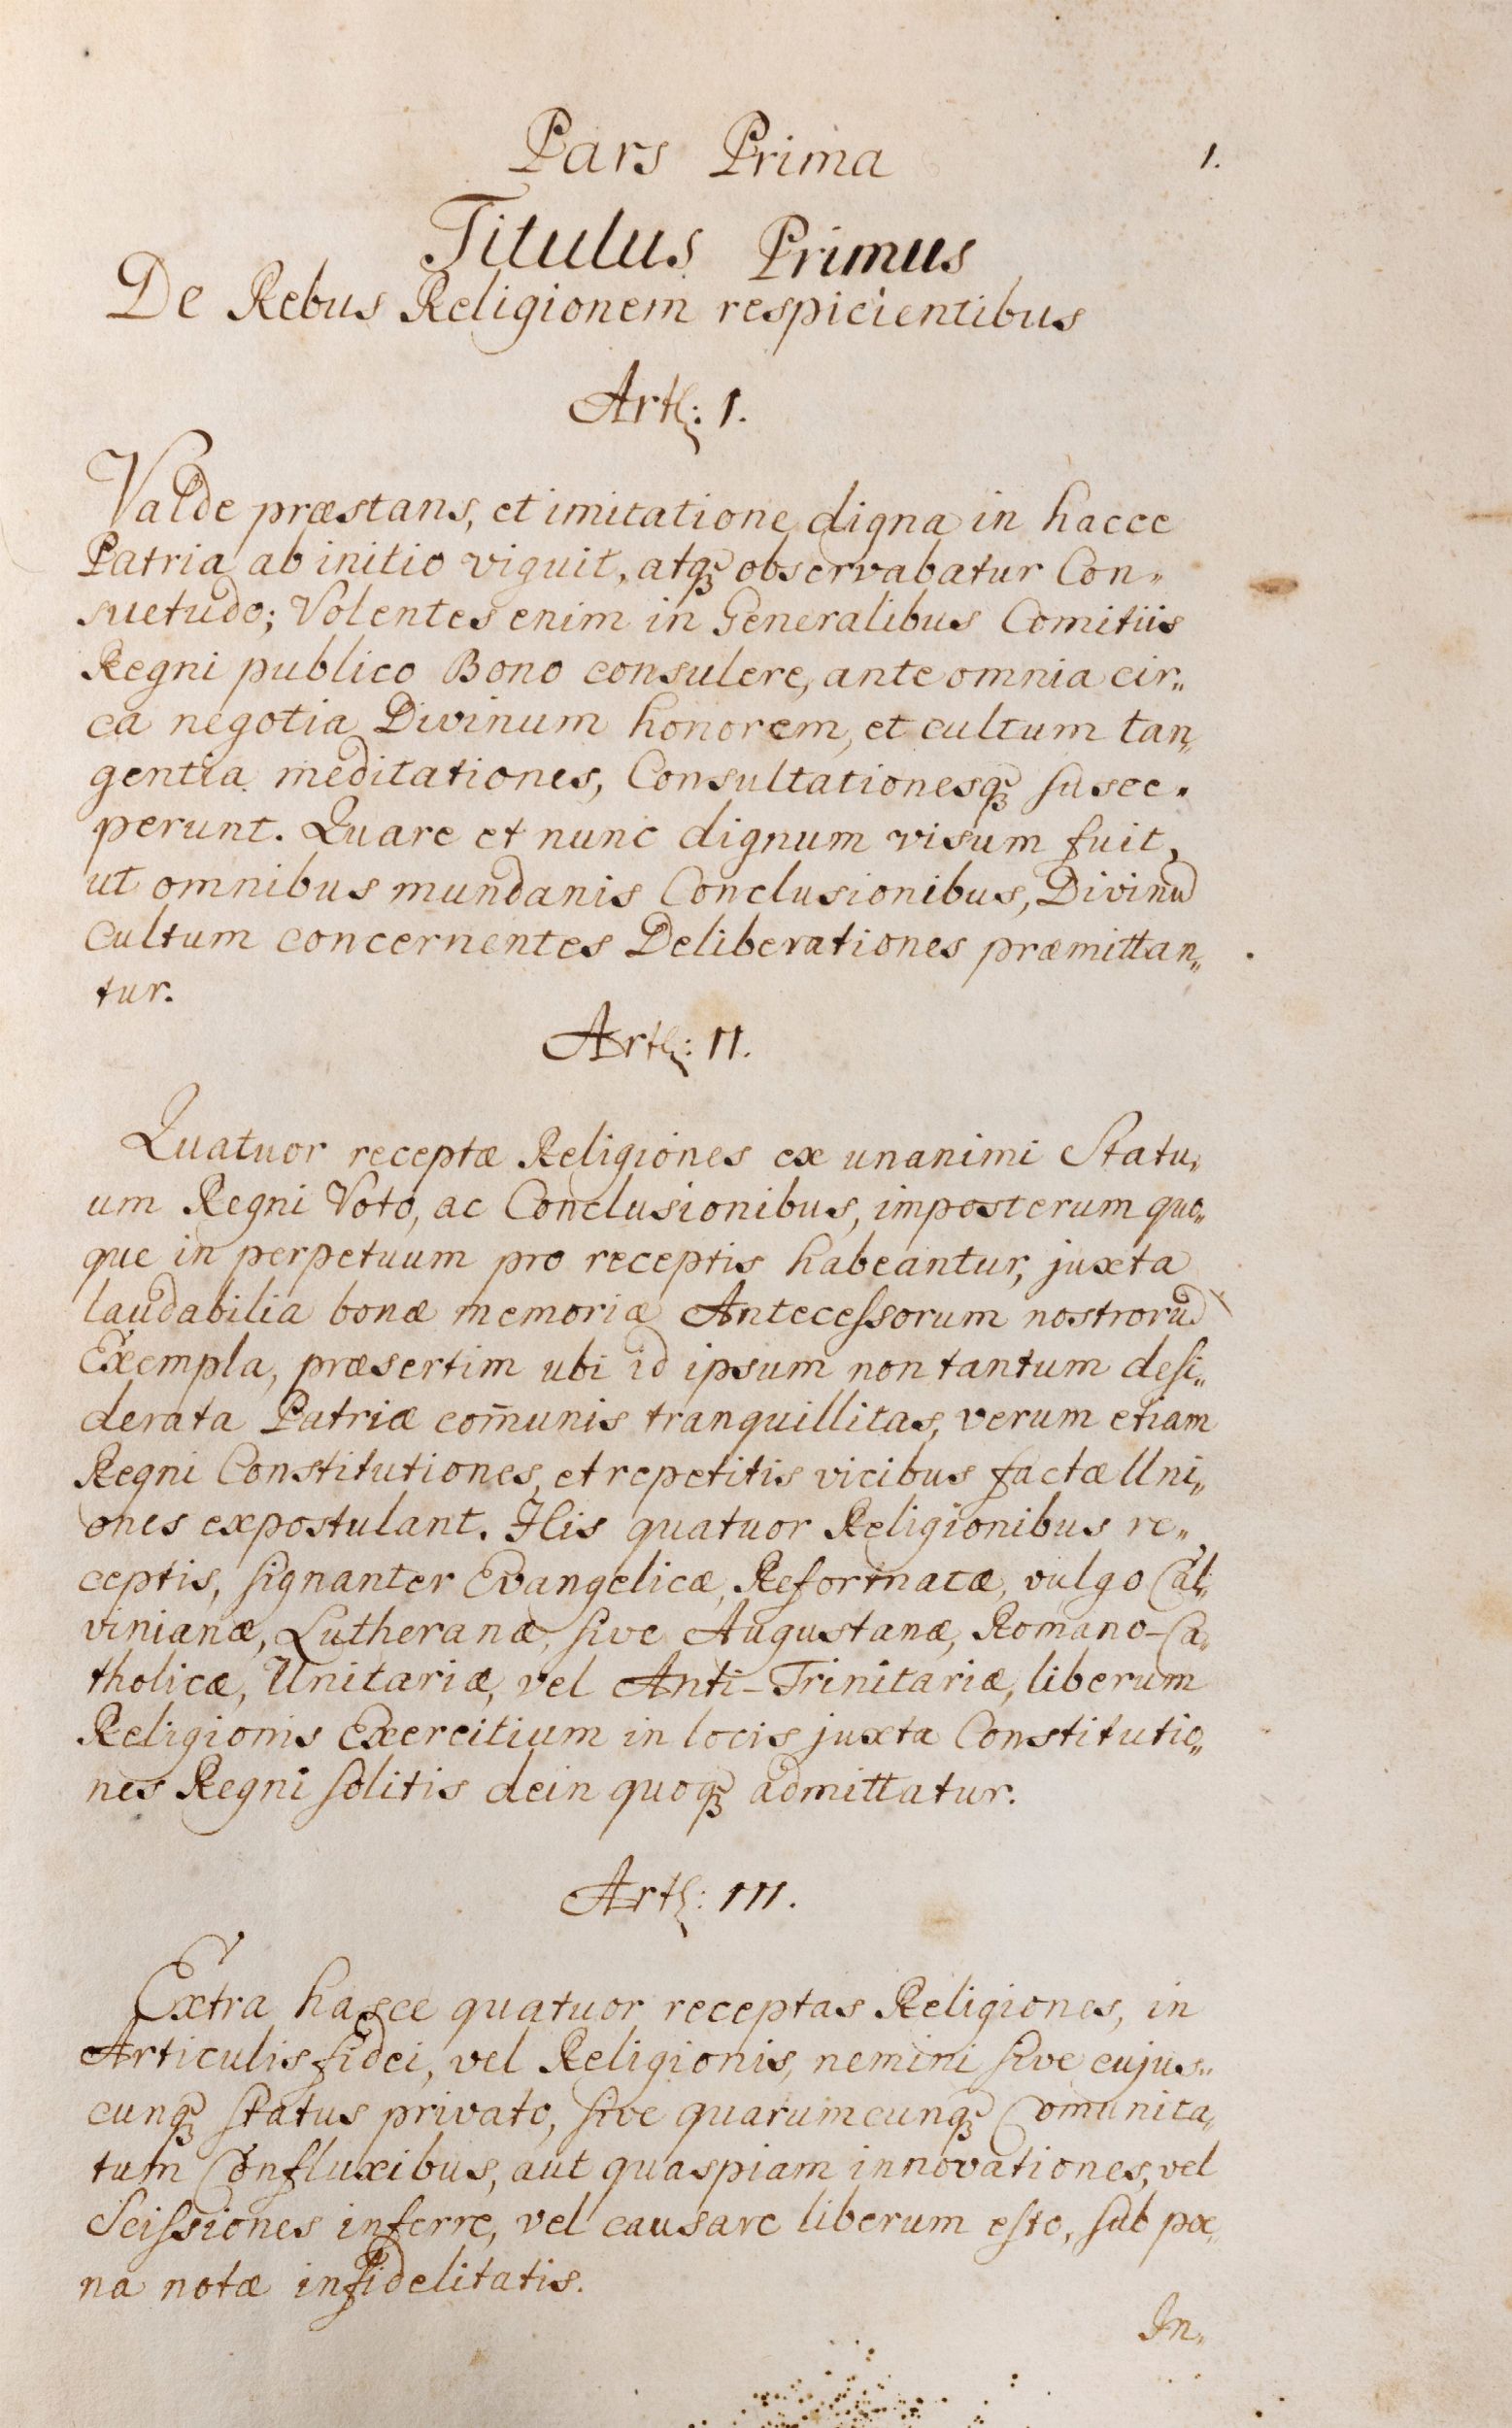 Pars Prima
1.
Titulus Primus
De Rebus Religionem respicientibus
Artl: I.
Valde præstans, et imitatione digna in hacce
Patria ab initio viguit, atqꝫ observabatur Con„
suetudo; Volentes enim in Generalibus Comitiis
Regni publico Bono consulere, ante omnia cir„
ca negotia Divinum honorem, et cultum tan„
gentia meditationes, Consultationesqꝫ susce„
perunt. Quare et nunc dignum visum fuit,
ut omnibus mundanis Conclusionibus, Divinū
Cultum concernentes Deliberationes præmittan„
tur.
Artl: II.
Quatuor receptæ Religiones ex unanimi Statu„
um Regni Voto, ac Conclusionibus, imposterum quo„
que in perpetuum pro receptis habeantur, juxta
laudabilia bonæ memoriæ Anteceſsorum nostrorū
Exempla, præsertim ubi id ipsum non tantum deſi„
derata Patriæ com̄unis tranquillitas, verum etiam
Regni Constitutiones, et repetitis vicibus factæ Uni„
ones expostulant. His quatuor Religionibus re„
ceptis, ſignanter Evangelicæ, Reformatæ, vulgo Cal„
vinianæ, Lutheranæ, ſive Augustanæ, Romano-Ca„
tholicæ, Unitariæ, vel Anti-Trinitariæ, liberum
Religionis Exercitium in locis juxta Constitutio„
nes Regni ſolitis dein quoqꝫ admittatur.
Artl: III.
Extra hasce quatuor receptas Religiones, in
Articulis fidei, vel Religionis, nemini ſive cujus„
cunqꝫ ſtatus privato, ſive quarumcunqꝫ Comunita„
tum Confluxibus, aut quaspiam innovationes, vel
Sciſsiones inferre, vel causare liberum eſto, ſub pœ„
na notæ infidelitatis.
In„